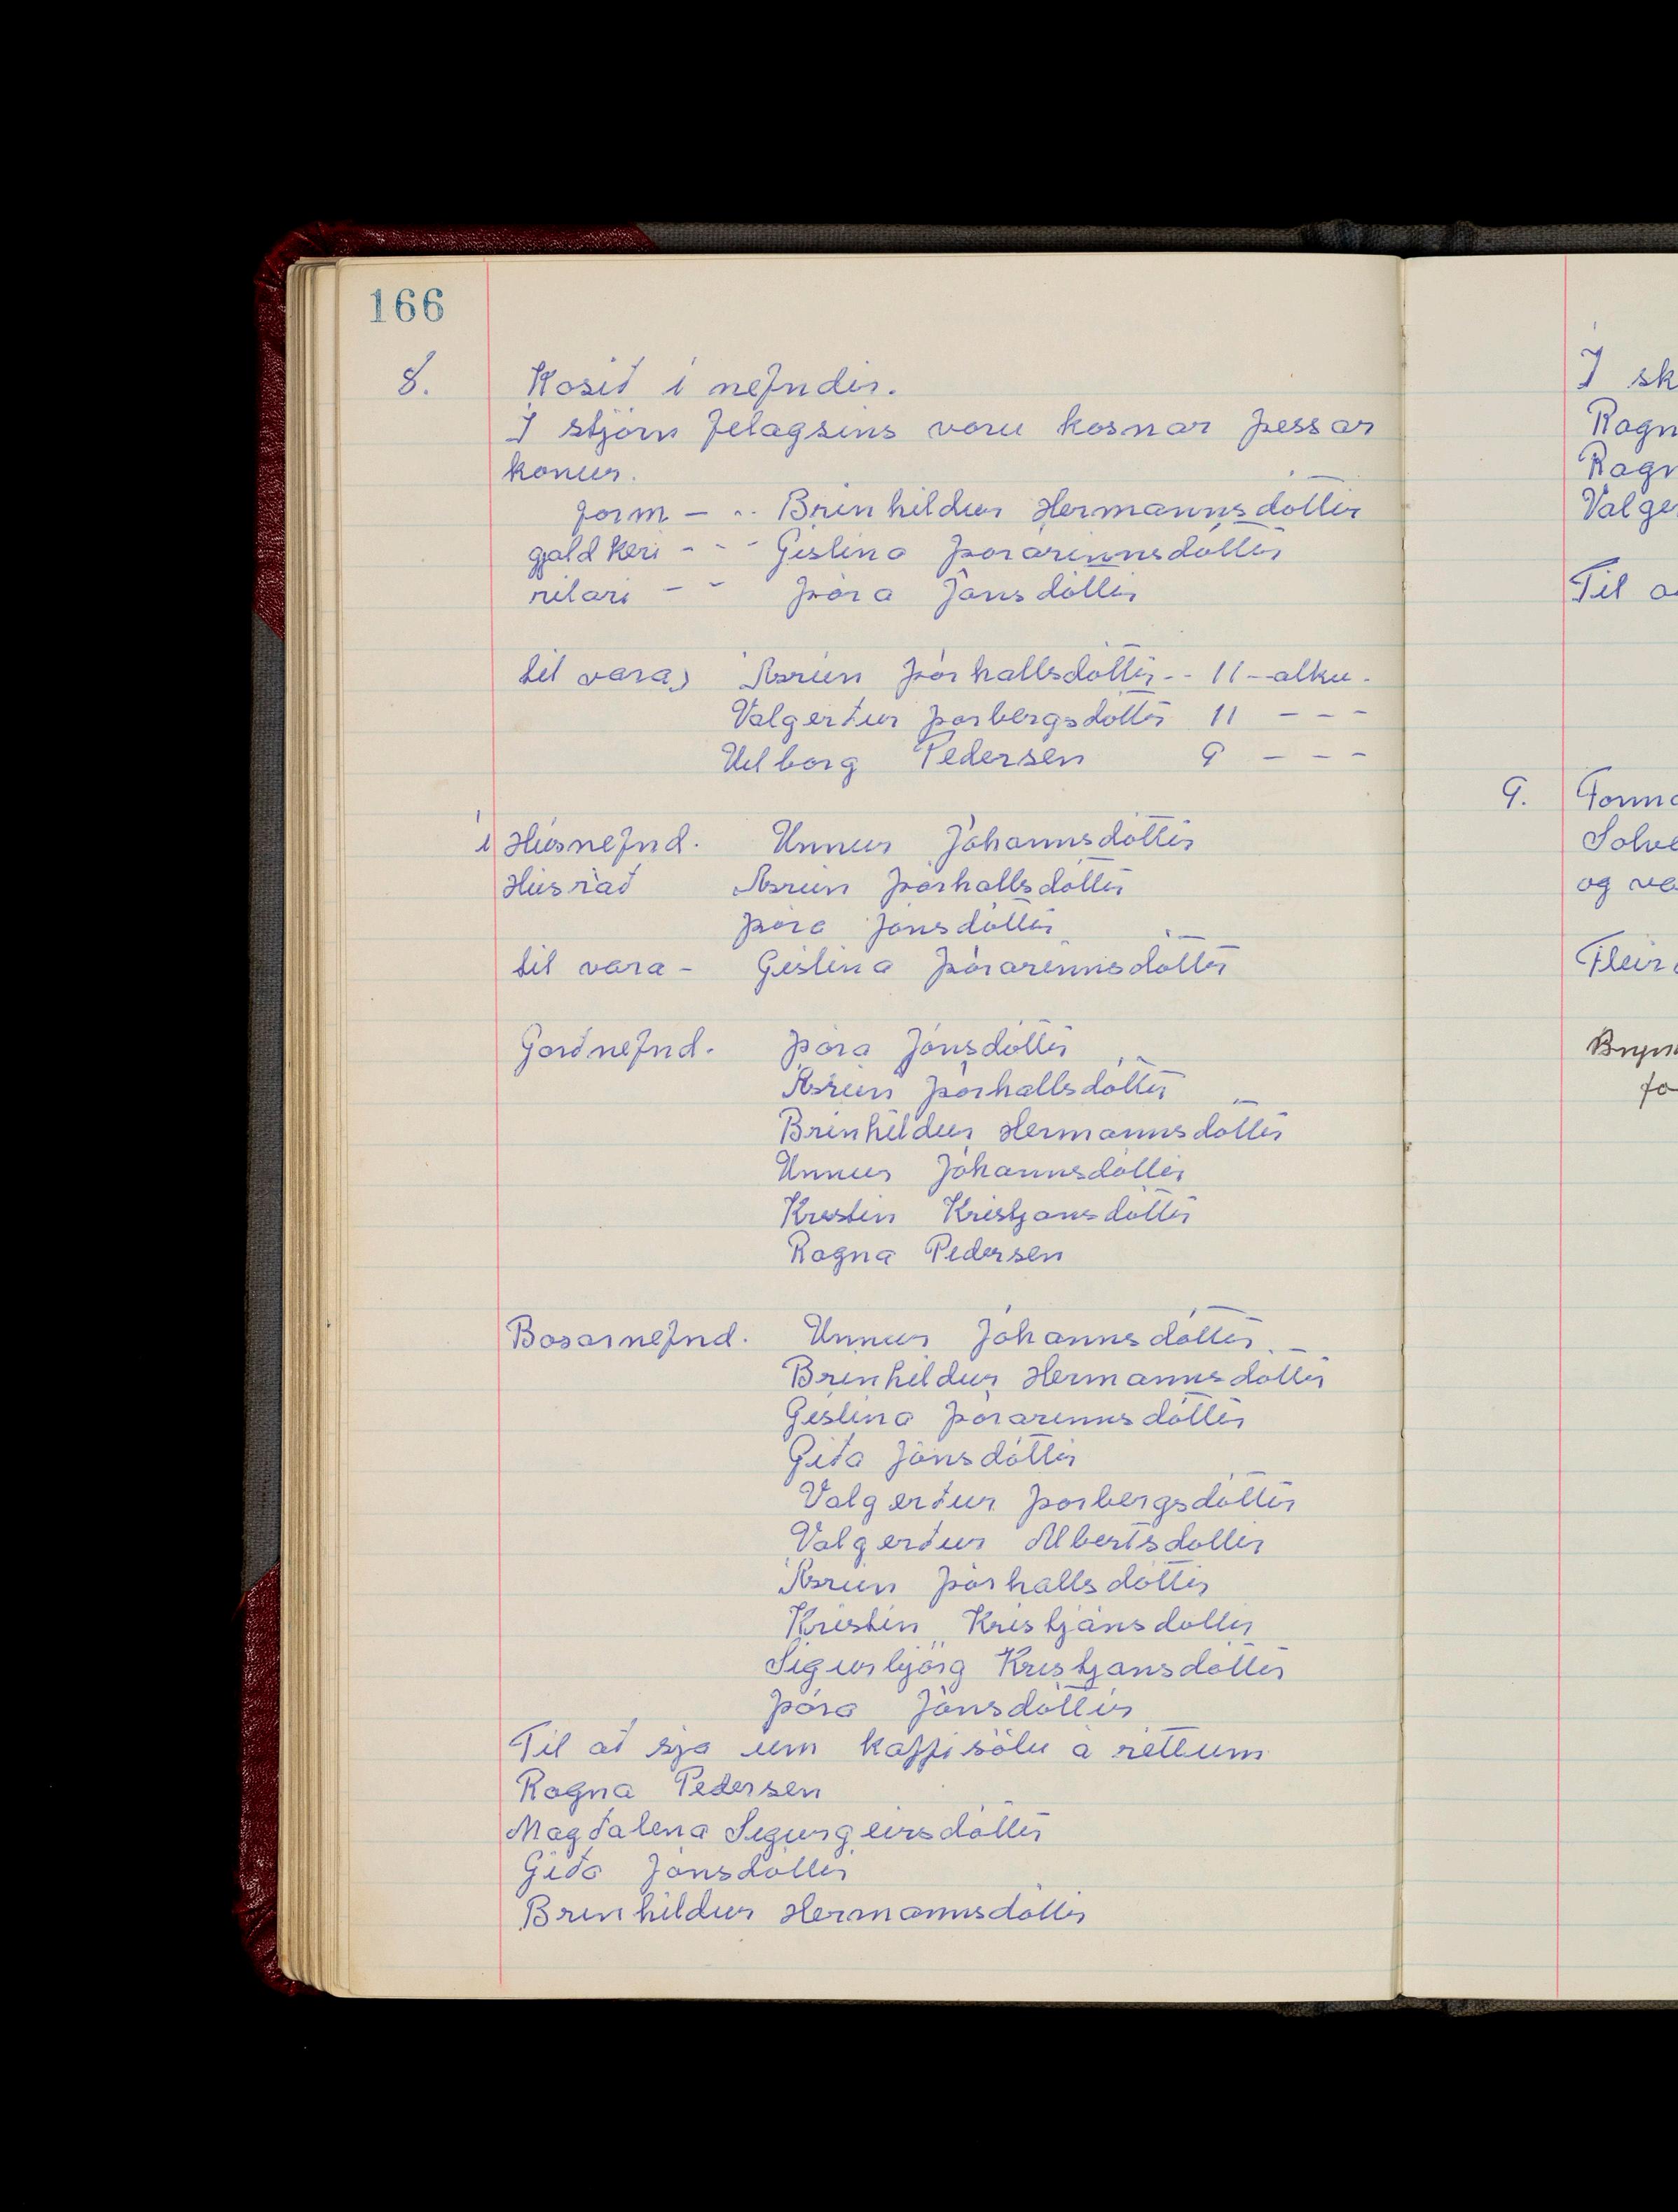 166
8. Kosið í nefndir.
I stjórn felagsins voru kosnar þessar
konur.
form - .. Brinhildur Hermannsdóttir
gjaldkeri - - - Gíslína Þórarinnsdóttir
ritari - - Þóra Jónsdóttir
til vara) Ásrún Þórhallsdóttir -- 11 - atkv.
Valgerður Þorbergsdóttir 11 - - -
Vilborg Pedersen 9 - - -
í Húsnefnd. Unnur Jóhannsdóttir
Húsráð Ásrún Þórhallsdóttir
Þóra Jónsdóttir
til vara - Gíslína Þórarinnsdóttir
Garðnefnd. Þóra Jónsdóttir
Ásrún Þórhallsdóttir
Brinhildur Hermannsdóttir
Unnur Jóhannsdóttir
Kristín Kristjansdóttir
Ragna Pedersen
Basarnefnd. Unnur Jóhannsdóttir
Brinhildur Hermannsdóttir
Gíslína Þórarinnsdóttir
Gíta Jónsdóttir
Valgerður Þorbergsdóttir
Valgerður Albertsdóttir
Ásrún Þórhallsdóttir
Kristín Kristjánsdóttir
Sigurbjörg Kristjansdóttir
Þóra Jónsdóttir
Til að sja um kaffisölu á rettum
Ragna Pedersen
Magðalena Sigurgeirsdóttir
Gíta Jónsdóttir
Brinhildur Hermannsdóttir
I sk
Ragn
Ragn
Valge
Til a
9. Forma
Solve
og va
Fleir
Bryn
fo